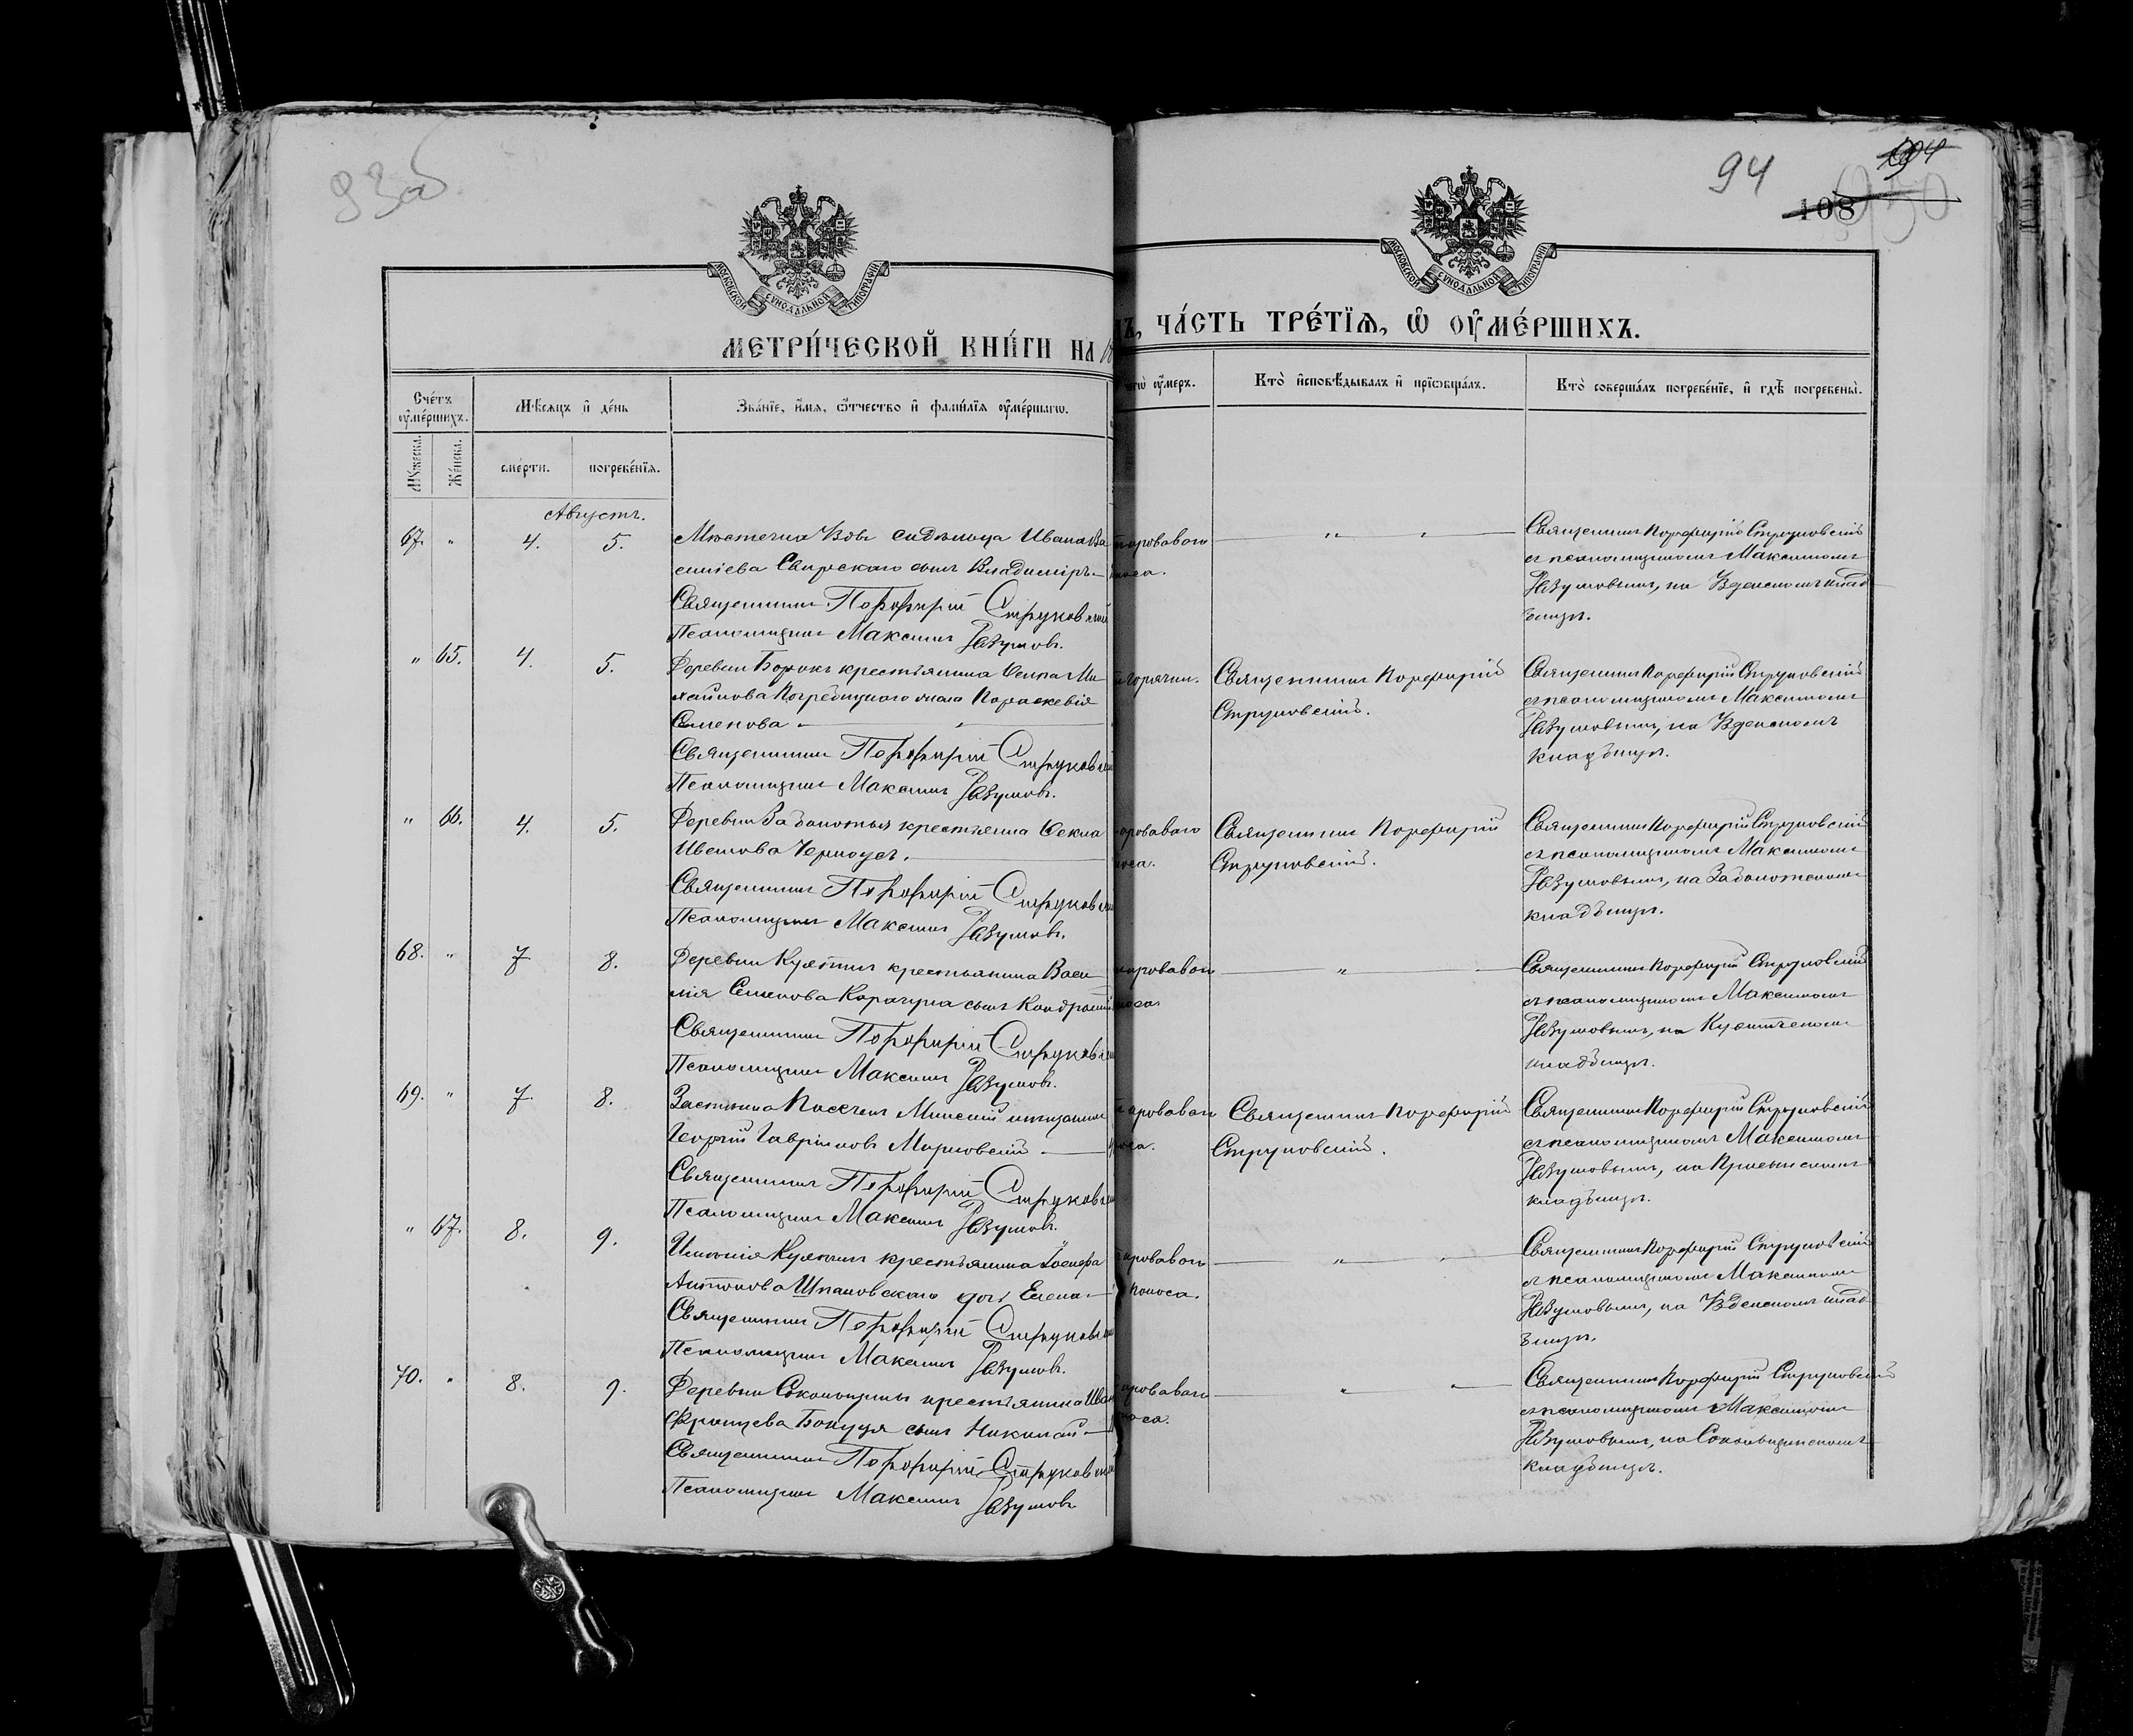 93об
94
194
108
950
МОСКОВСКОЙ СѴНОДАЛЬНОЙ ТИПОГРАФІИ
МОСКОВСКОЙ СѴНОДАЛЬНОЙ ТИПОГРАФІИ
МЕТРИ́ЧЕСКОЙ КНИ́ГИ НА
ЧА́СТЬ ТРЕ́ТЇѦ, Ѡ҆ ОУ҆МЕ́РШИХЪ.
Сче́тъ оу҆ме́ршихъ.
Мѣ́сѧцъ и҆ де́нь
Зва́нїе, и҆́мѧ, ѻ҆́тчество и҆ фами́лїѧ оу҆ме́ршагѡ.
оу҆́меръ.
Кто̀ и҆сповѣ́дывалъ и҆ прїѡбща́лъ.
Кто̀ соверша́лъ погребе́нїе, и҆ гдѣ̀ погребены̀.
Мꙋ́жеска.
Же́нска.
сме́рти.
погребе́нїѧ.
Августъ.
67. " 4. 5.
Мѣстечка Узды сидѣльца Ивана Ва
силіева Свирскаго сынъ Владиміръ.
Священникъ Порфирій Струковскій
Псаломщикъ Максимъ Разумовъ.
кроваваго
поноса.
" "
Священникъ Порфирій Струковскій
съ псаломщикомъ Максимомъ
Разумовымъ, на Узденскомъ клад
бищѣ.
" 65. 4. 5.
Деревни Борокъ крестьянина Осипа Ми
хайлова Погребицкаго жена Параскевія
Семенова
Священникъ Порфирій Струковскій
Псаломщикъ Максимъ Разумовъ.
горячки.
Священникъ Порфирій
Струковскій.
Священникъ Порфирій Струковскій
съ псаломщикомъ Максимомъ
Разумовымъ, на Узденскомъ
кладбищѣ.
" 66. 4. 5.
Деревни Заболотья крестьянка Фекла
Ивашова Черноусъ.
Священникъ Порфирій Струковскій
Псаломщикъ Максимъ Разумовъ.
кроваваго
поноса.
Священникъ Порфирій
Струковскій.
Священникъ Порфирій Струковскій
съ псаломщикомъ Максимомъ
Разумовымъ, на Заболотскомъ
кладбищѣ.
68. " 7 8.
Деревни Кухтичъ крестьянина Васи
лія Семенова сынъ Кондратій
Священникъ Порфирій Струковскій
Псаломщикъ Максимъ Разумовъ.
кроваваго
поноса
"
Священникъ Порфирій Струковскій
съ псаломщикомъ Максимомъ
Разумовымъ, на Кухтическомъ
кладбищѣ.
69. " 7. 8.
Застѣнка Минскій мѣщанинъ
Георгій Гавріиловъ
Священникъ Порфирій Струковскій
Псаломщикъ Максимъ Разумовъ.
кроваваго
поноса.
Священникъ Порфирій
Струковскій.
Священникъ Порфирій Струковскій
съ псаломщикомъ Максимомъ
Разумовымъ, на
кладбищѣ.
" 67. 8. 9.
Имѣнія Кухтичъ крестьянина Іосифа
Антонова Шпаковскаго дочь Елена.
Священникъ Порфирій Струковскій
Псаломщикъ Максимъ Разумовъ.
кроваваго
поноса.
"
Священникъ Порфирій Струковскій
съ псаломщикомъ Максимомъ
Разумовымъ, на Узденскомъ клад
бищѣ.
70. " 8. 9.
Деревни Соковщины крестьянина Ивана
Францева сынъ Николай
Священникъ Порфирій Струковскій
Псаломщикъ Максимъ Разумовъ
кроваваго
поноса.
" "
Священникъ Порфирій Струковскій
съ псаломщикомъ Максимомъ
Разумовымъ, на
кладбищѣ.